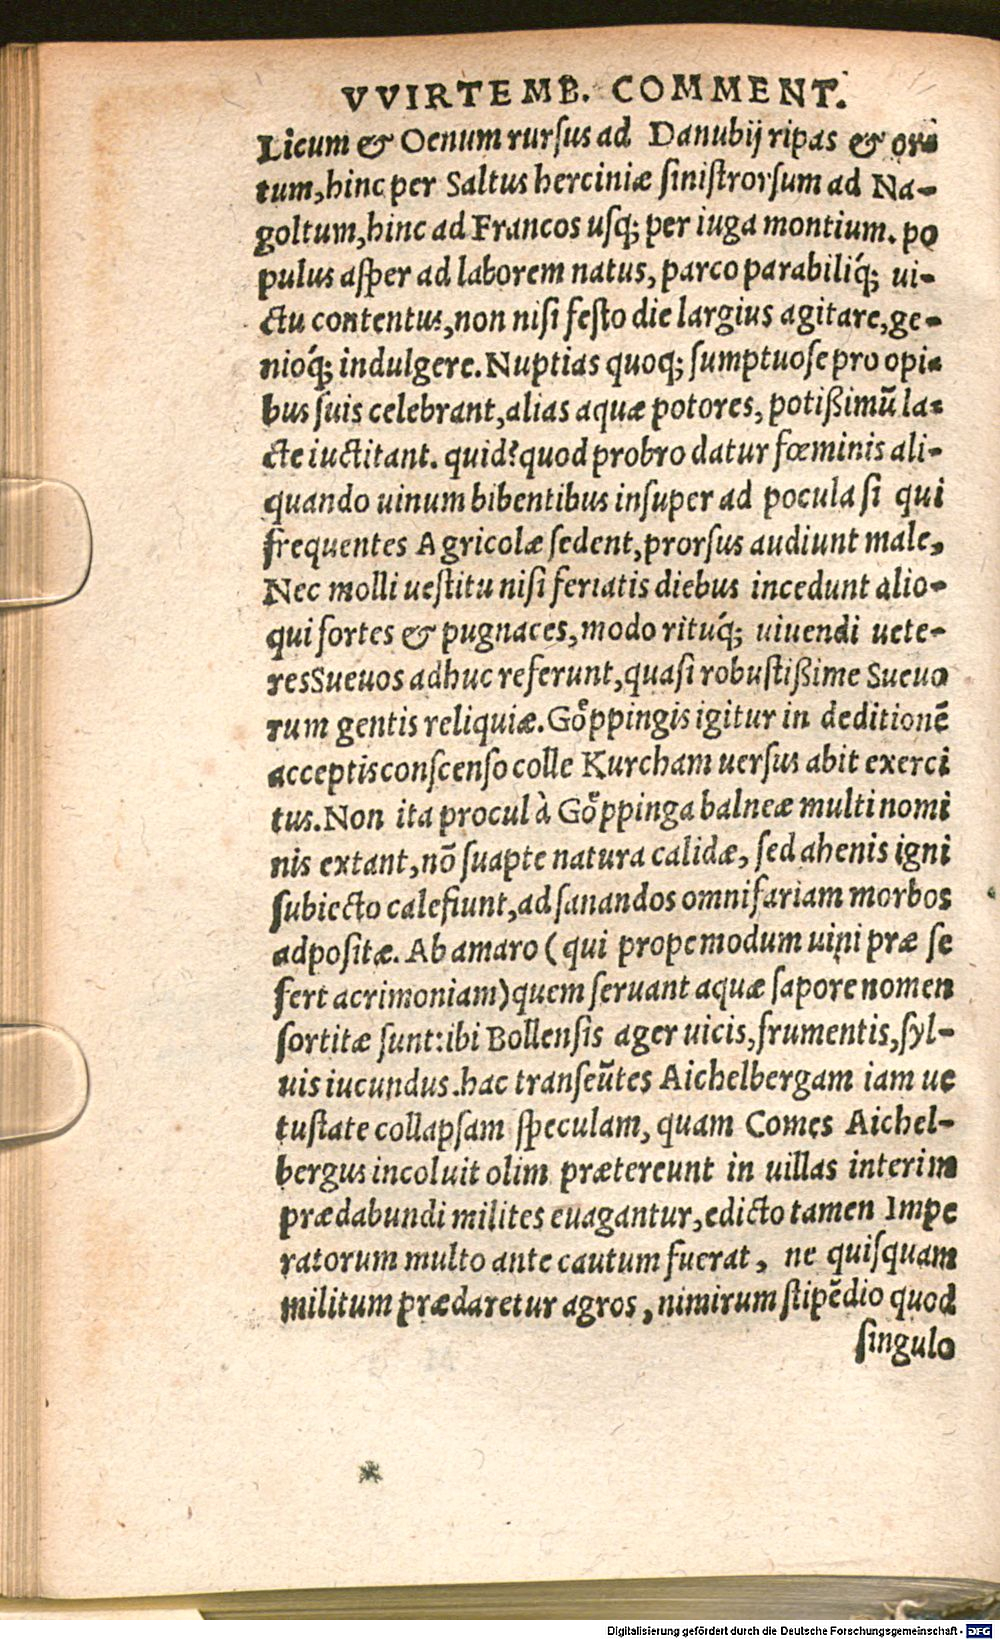 VVIRTEMB. COMMENT.
Licum & Oenum rursus ad Danubij ripas & or
tum, hinc per Saltus herciniæ sinistrorsum ad Na-
goltum, hinc ad Francos usq; per iuga montium. po
pulus asper ad laborem natus, parco parabiliq́; ui-
ctu contentus, non nisi festo die largius agitare, ge-
nioq́; indulgere. Nuptias quoq; sumptuose pro opi-
bus suis celebrant, alias aquæ potores, potißimũ la-
cte iuctitant. quid? quod probro datur fœminis ali-
quando uinum bibentibus insuper ad pocula si qui
frequentes Agricolæ sedent, prorsus audiunt male,
Nec molli uestitu nisi feriatis diebus incedunt alio-
qui fortes & pugnaces, modo rituq́; uiuendi uete-
res Sueuos adhuc referunt, quasi robustißime Sueuo
rum gentis reliquiæ. Goͤppingis igitur in deditionẽ
acceptis conscenso colle Kurcham uersus abit exerci
tus. Non ita procul à Goͤppinga balneæ multi nomi
nis extant, nõ suapte natura calidæ, sed ahenis igni
subiecto calefiunt, ad sanandos omnifariam morbos
adpositæ. Ab amaro (qui propemodum uini præ se
fert acrimoniam) quem seruant aquæ sapore nomen
sortitæ sunt: ibi Bollensis ager uicis, frumentis, syl-
uis iucundus. hac transeũtes Aichelbergam iam ue
tustate collapsam speculam, quam Comes Aichel-
bergus incoluit olim prætereunt in uillas interim
prædabundi milites euagantur, edicto tamen Impe
ratorum multo ante cautum fuerat, ne quisquam
militum prædaretur agros, nimirum stipẽdio quod
singulo
Digitalisierung gefördert durch die Deutsche Forschungsgemeinschaft - DFG